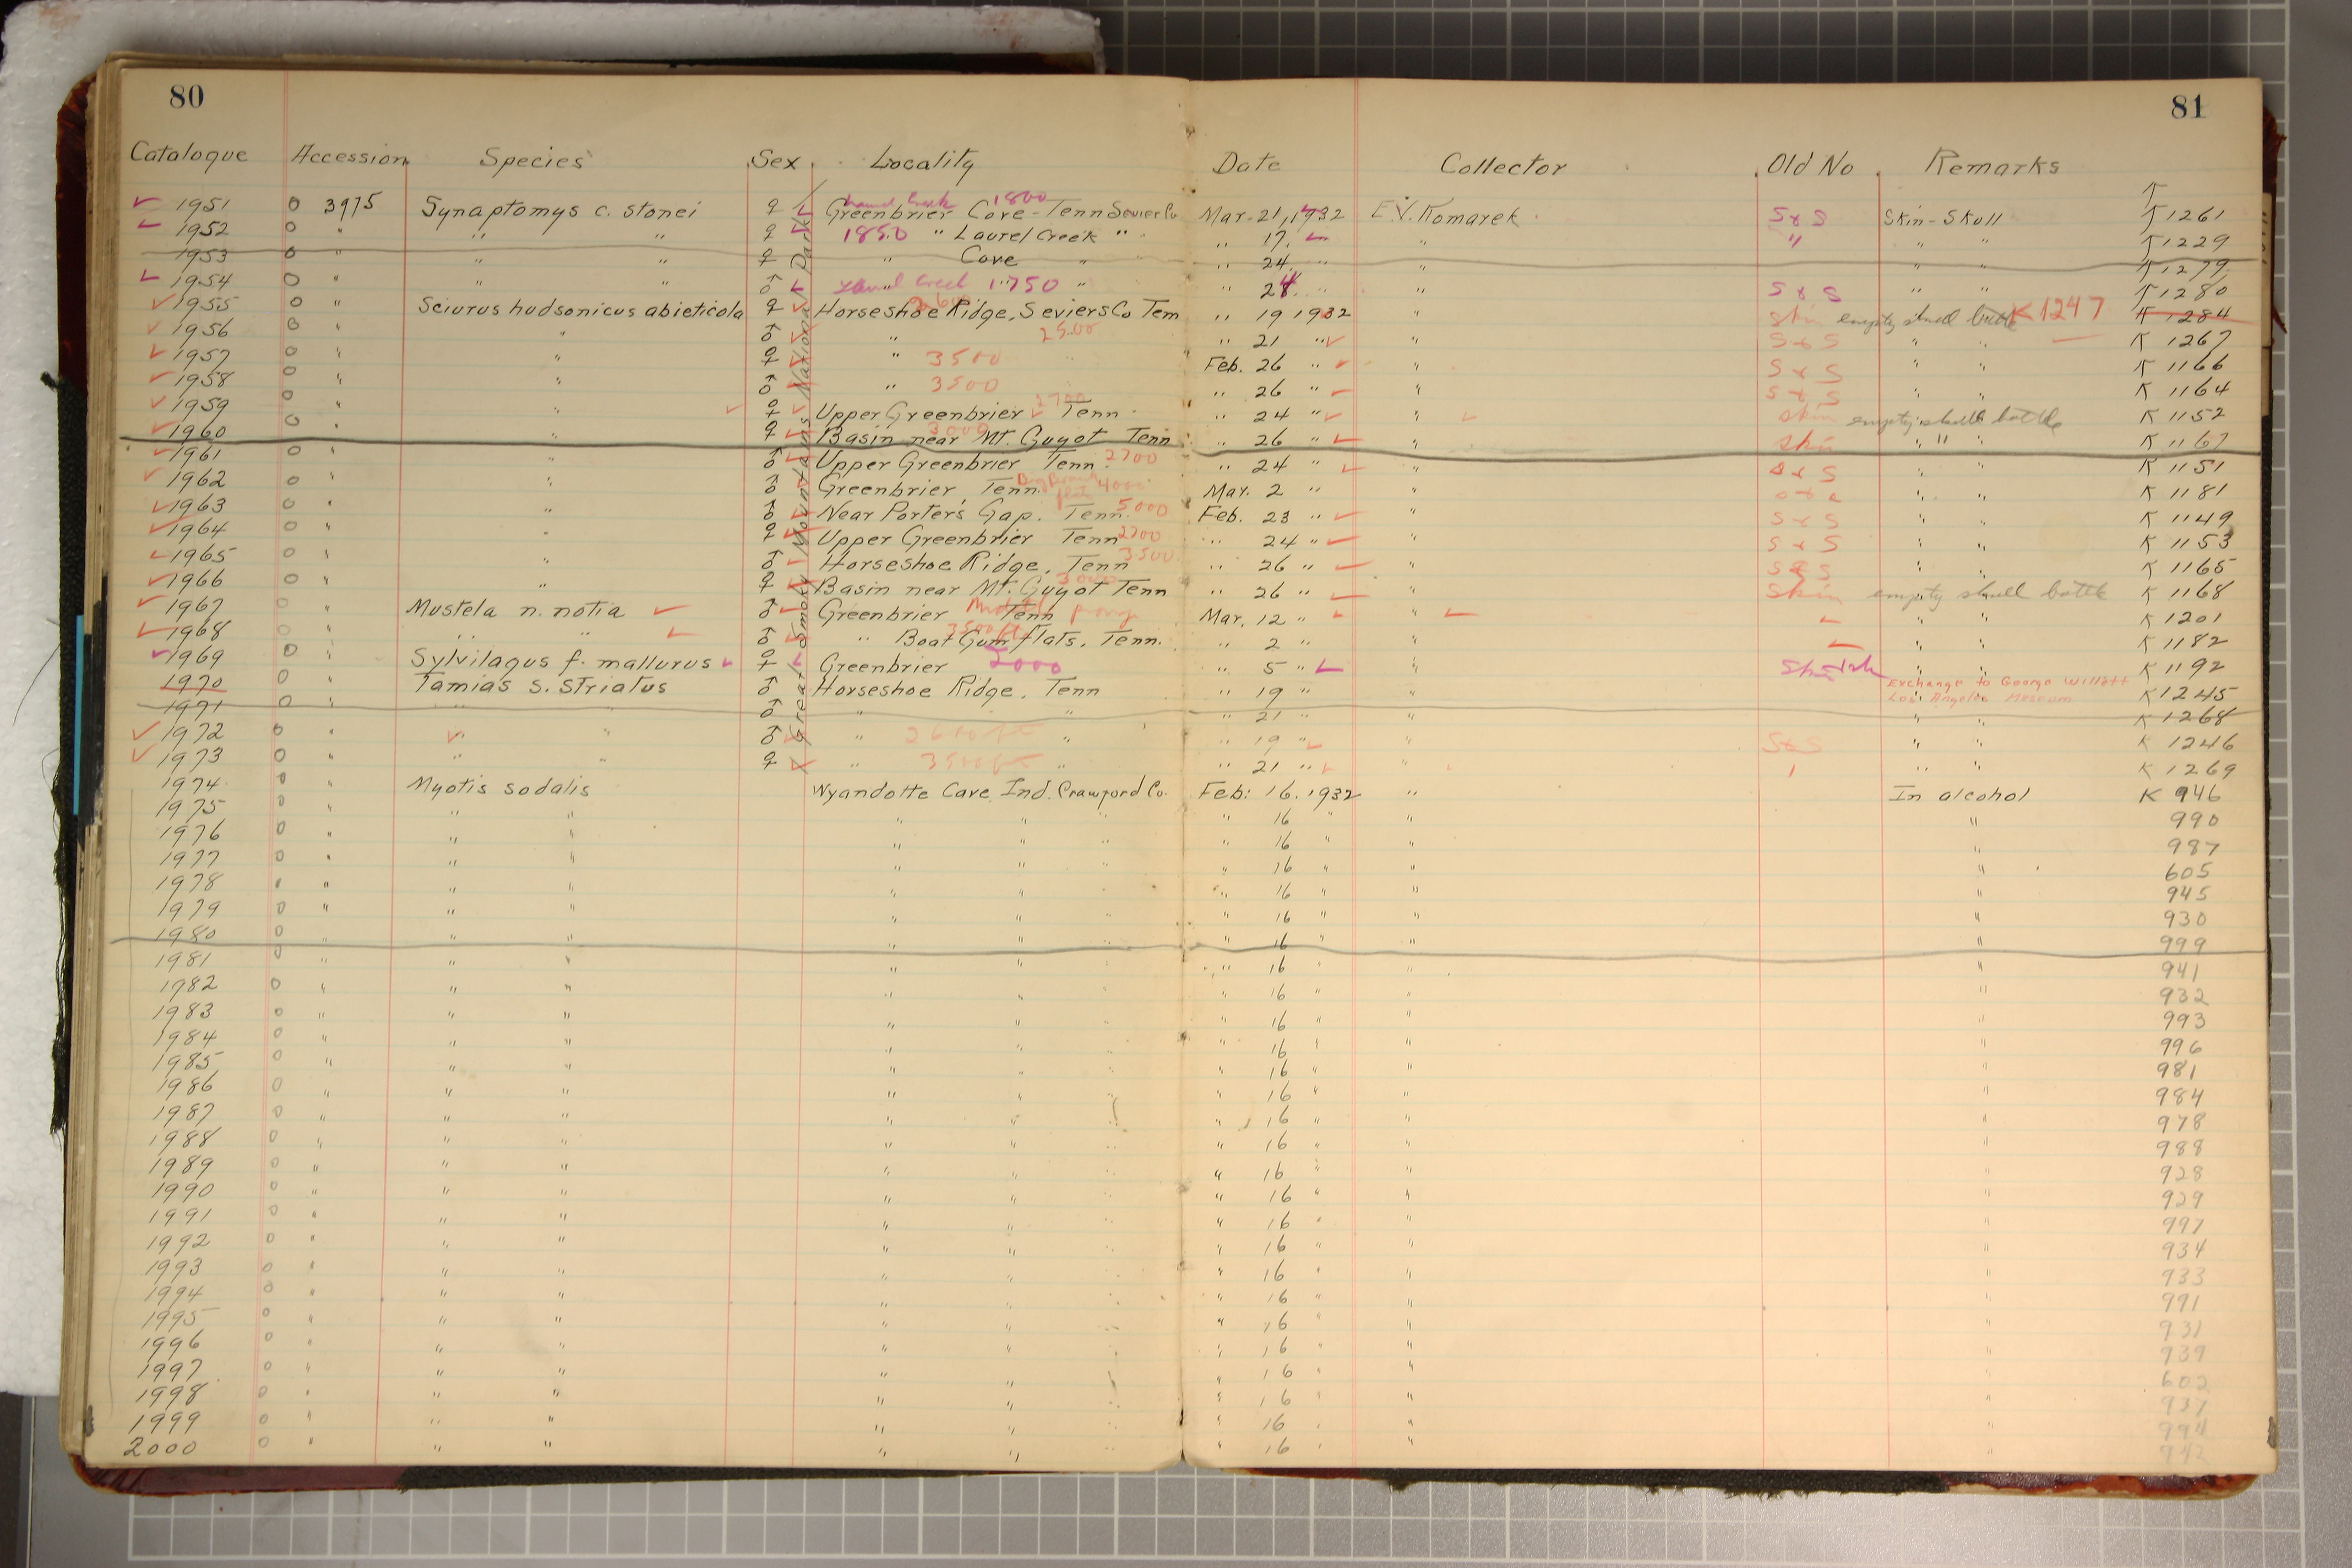 80
81
Catalogue Accession Species Sex Locality Date Collector Old No Remarks
Great Smoky Mountains National Park
1951 0 3975 Synaptomys c. stonei ♀ Laurel Creek 1800 Greenbrier Cove - Tenn Sevier Co Mar. 21, 1932 E.V. Komarek S & S Skin - Skull K 1261
1952 0 " " " ♀ 1850 " Laurel Creek " " 17 " " " " " K 1229
1953 0 " " " ♀ " Cove " " 24 " " " " K 1279
1954 0 " " " ♂ Laurel Creek " 1750 " " 24 " " S & S " " K 1280
1955 0 " Sciurus hudsonicus abieticola ♀ Horseshoe Ridge, Seviers Co Tenn " 19 1932 " skin empty skull bottle K 1247 K 1284
1956 0 " " ♂ " 2500 " 21 " " S & S " " K 1267
1957 0 " " ♀ " 3500 " Feb. 26 " " S & S " " K 1166
1958 0 " " ♂ " 3500 " 26 " " S & S " " K 1164
1959 0 " " ♀ Upper Greenbrier Tenn 2700 " 24 " " skin empty skull bottle " " K 1152
1960 0 " " ♀ Basin near Mt. Guyot Tenn 3000 " 26 " " skin " " " K 1167
1961 0 " " ♂ Upper Greenbrier Tenn. 2700 " 24 " " S & S " " K 1151
1962 0 " " ♂ Greenbrier, Tenn. 4000 Mar. 2 " " " " K 1181
1963 0 " " ♂ Near Porters Gap. Tenn. 5000 Feb. 23 " " S & S " " K 1149
1964 0 " " ♀ Upper Greenbrier Tenn 2700 " 24 " " S & S " " K 1153
1965 0 " " ♂ Horseshoe Ridge, Tenn 3500 " 26 " " S & S " " K 1165
1966 0 " " ♀ Basin near Mt. Guyot Tenn 3000 " 26 " " Skin empty skull bottle " " K 1168
1967 0 " Mustela n. notia ♂ Greenbrier Tenn Middle prong Mar. 12 " " " " K 1201
1968 0 " " " ♂ " Boat Gum flats, Tenn. 3500 ft " 2 " " " " K 1182
1969 0 " Sylvilagus f. mallurus ♀ Greenbrier 2000 " 5 " " " " K 1192
1970 0 " Tamias s. striatus ♂ Horseshoe Ridge, Tenn " 19 " " Exchange to George Willett Los Angeles Museum " " K 1245
1971 0 " " " ♂ " " " 21 " " " " K 1268
1972 0 " " " ♂ " 2600 ft " " 19 " " S & S " " K 1246
1973 0 " " " ♀ " 3500 ft " " 21 " " " " K 1269
1974 0 " Myotis sodalis Wyandotte Cave, Ind. Crawford Co. Feb: 16. 1932 " In alcohol K 946
1975 0 " " " " " " " 16 " " " 990
1976 0 " " " " " " " 16 " " " 987
1977 0 " " " " " " " 16 " " " 605
1978 " " " " " " " 16 " " " 945
1979 0 " " " " " " " 16 " " " 930
1980 0 " " " " " " " 16 " " " 999
1981 0 " " " " " " " 16 " " " 941
1982 0 " " " " " " " 16 " " " 932
1983 0 " " " " " " " 16 " " " 993
1984 0 " " " " " " " 16 " " " 996
1985 0 " " " " " " " 16 " " " 981
1986 0 " " " " " " " 16 " " " 984
1987 0 " " " " " " " 16 " " " 978
1988 0 " " " " " " " 16 " " " 988
1989 0 " " " " " " " 16 " " " 928
1990 0 " " " " " " " 16 " " " 929
1991 0 " " " " " " " 16 " " " 997
1992 0 " " " " " " " 16 " " " 934
1993 0 " " " " " " " 16 " " " 933
1994 0 " " " " " " " 16 " " " 991
1995 0 " " " " " " " 16 " " " 931
1996 0 " " " " " " " 16 " " " 939
1997 0 " " " " " " " 16 " " " 602
1998 0 " " " " " " " 16 " " " 937
1999 0 " " " " " " " 16 " " " 994
2000 0 " " " " " " " 16 " " " 942